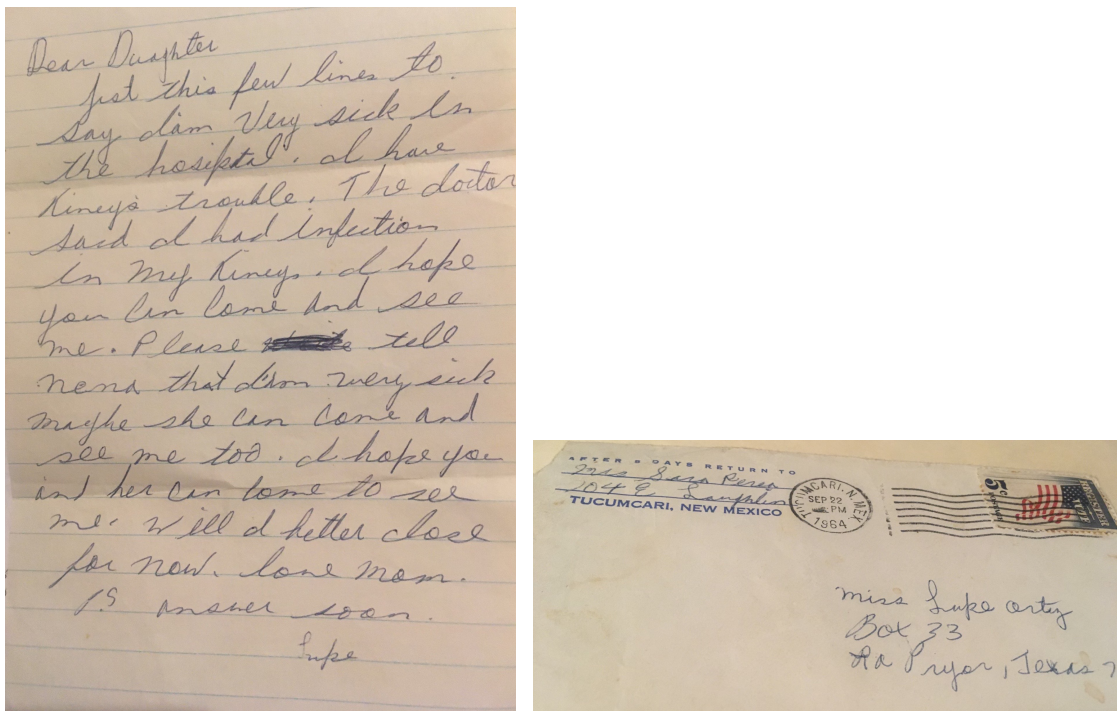 Dear Daughter
Just this few lines to
say I'am Very sick In
the hosiptal. I have
Kiney's trouble. The doctor
said I had Infection
in My Kineys. I hope
you Can Come And see
me. Please tell
nena that I'am very sick
maybe she can Come and
see me too. I hope you
and her can Come to see
me. Will I better close
for now. Love Mom.
P.S answer soon.
Lupe
AFTER 5 DAYS RETURN TO
Mrs Sara Perea
104 E. Laughlin
TUCUMCARI, NEW MEXICO
TUCUMCARI, N. MEX.
SEP 22
PM
1964
5c
REGISTER
VOTE
Miss Lupe Ortiz
Box 33
La Pryor, Texas